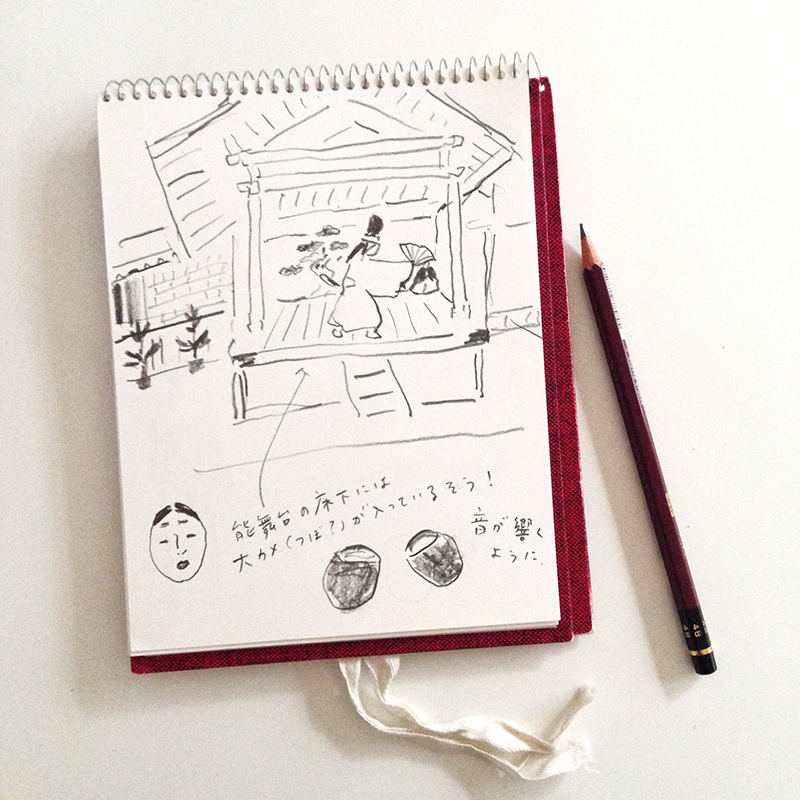 能舞台の床下には
大カメ(つぼ?)が入っているそう!
音が響く
ように.
4B